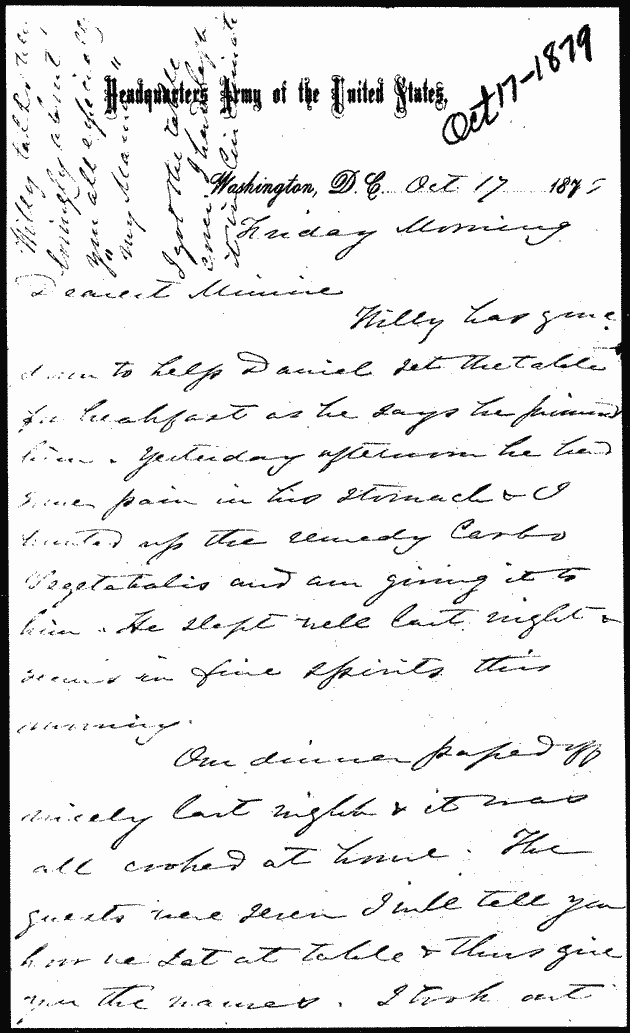 Headquarters Army of the United States.
Oct 17-1879
Washington, D.C. Oct 17 187
Friday Morning
Dearest Minnie
Willy has gone
down to help Daniel set the table
for breakfast as he says he promised
him. Yesterday afternoon he had
some pain in his stomach & I
hunted up the remedy Carbo
Vegetabalis and am giving it to
him. He slept well last night &
seems in fine spirits this
morning.
Our dinner passed off
nicely last night & it was
all cooked at home. The
guests were seven I will tell you
how we sat at table & thus give
you the names. I took out
Willy talks
lovingly about
you all especially
"my Mama"
I got the table